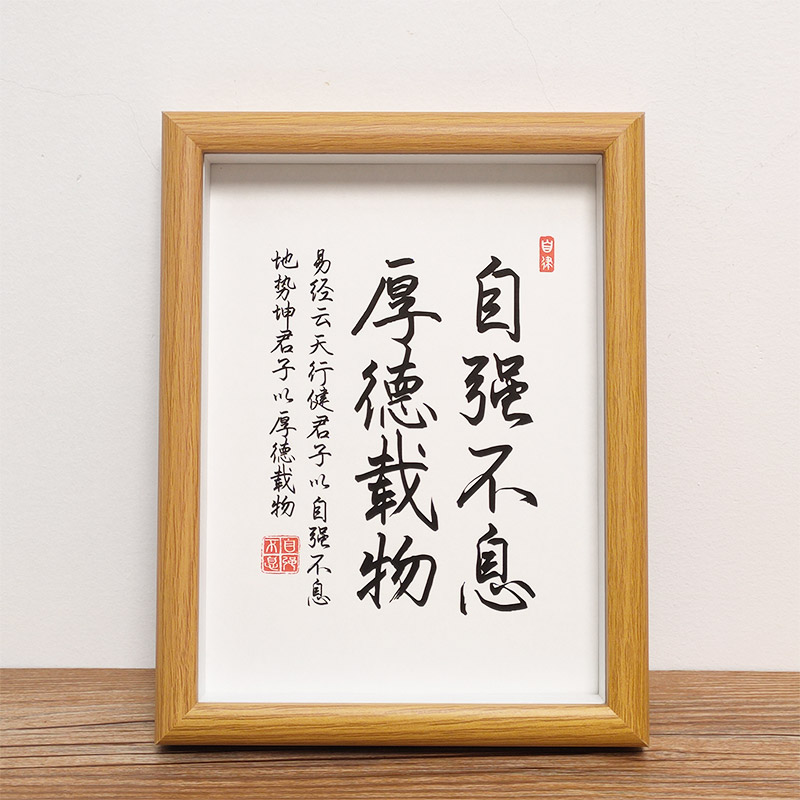 自律
自强不息
厚德载物
易经云天行健君子以自强不息
地势坤君子以厚德载物
自强不息